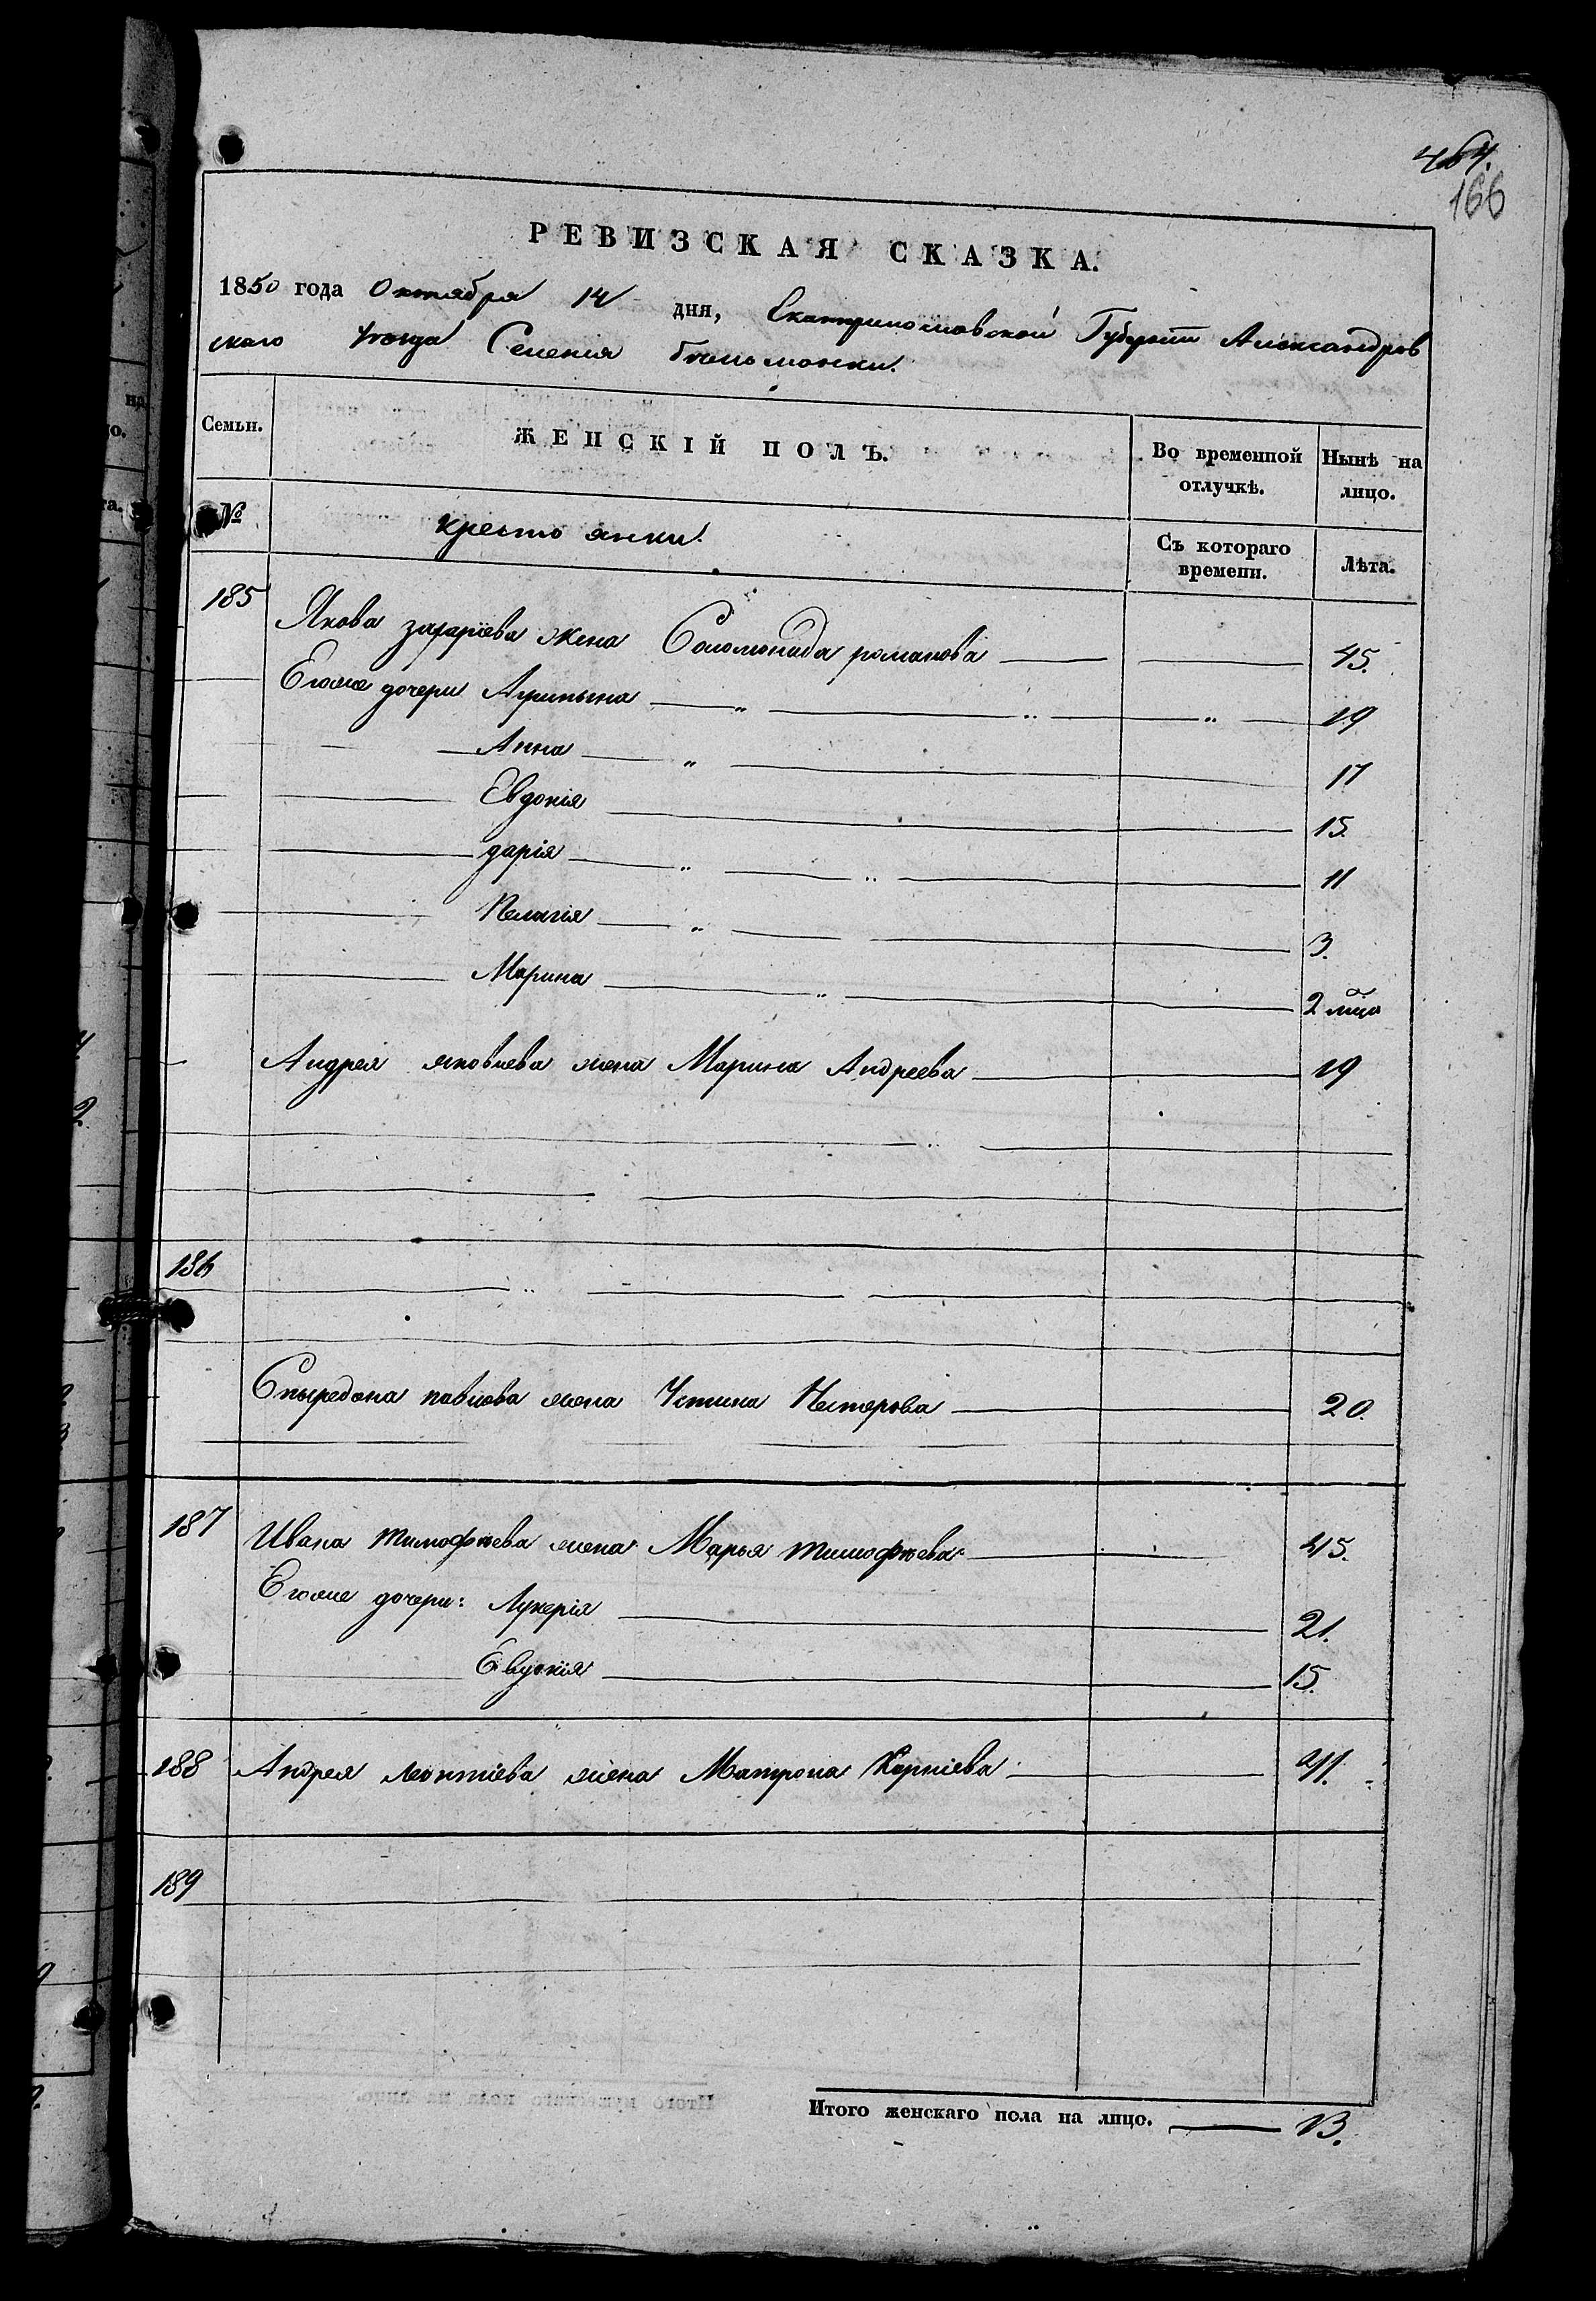 464.
166
РЕВИЗСКАЯ СКАЗКА.
1850 года Октября 14 дня, Екатеринославской Губернiи Александров
скаго уезда Селенiя
Семьи. ЖЕНСКIЙ ПОЛЪ. Во временной отлучкѣ. Нынѣ на лицо.
№ кресто янки. Съ котораго времени. Лѣта.
185 Якова захарiева жена Соломонида романова 45.
Егоже дочери Агрипына 19
Анна 17
Евдокiя 15.
дарiя 11
Пелагiя 3.
Марина 2 мца
Андрея яковлева жена Марина Андреева 19
186
Спыредона павлова жена Устина Нестерова 20.
187 Ивана тимофѣева жена Марья тимофѣева 45.
Егоже дочери: Лукерiя 21.
Евдокiя 15.
188 Андрея леонтiева жена Матрона Карпiева 41.
189
Итого женскаго пола на лицо. 13.